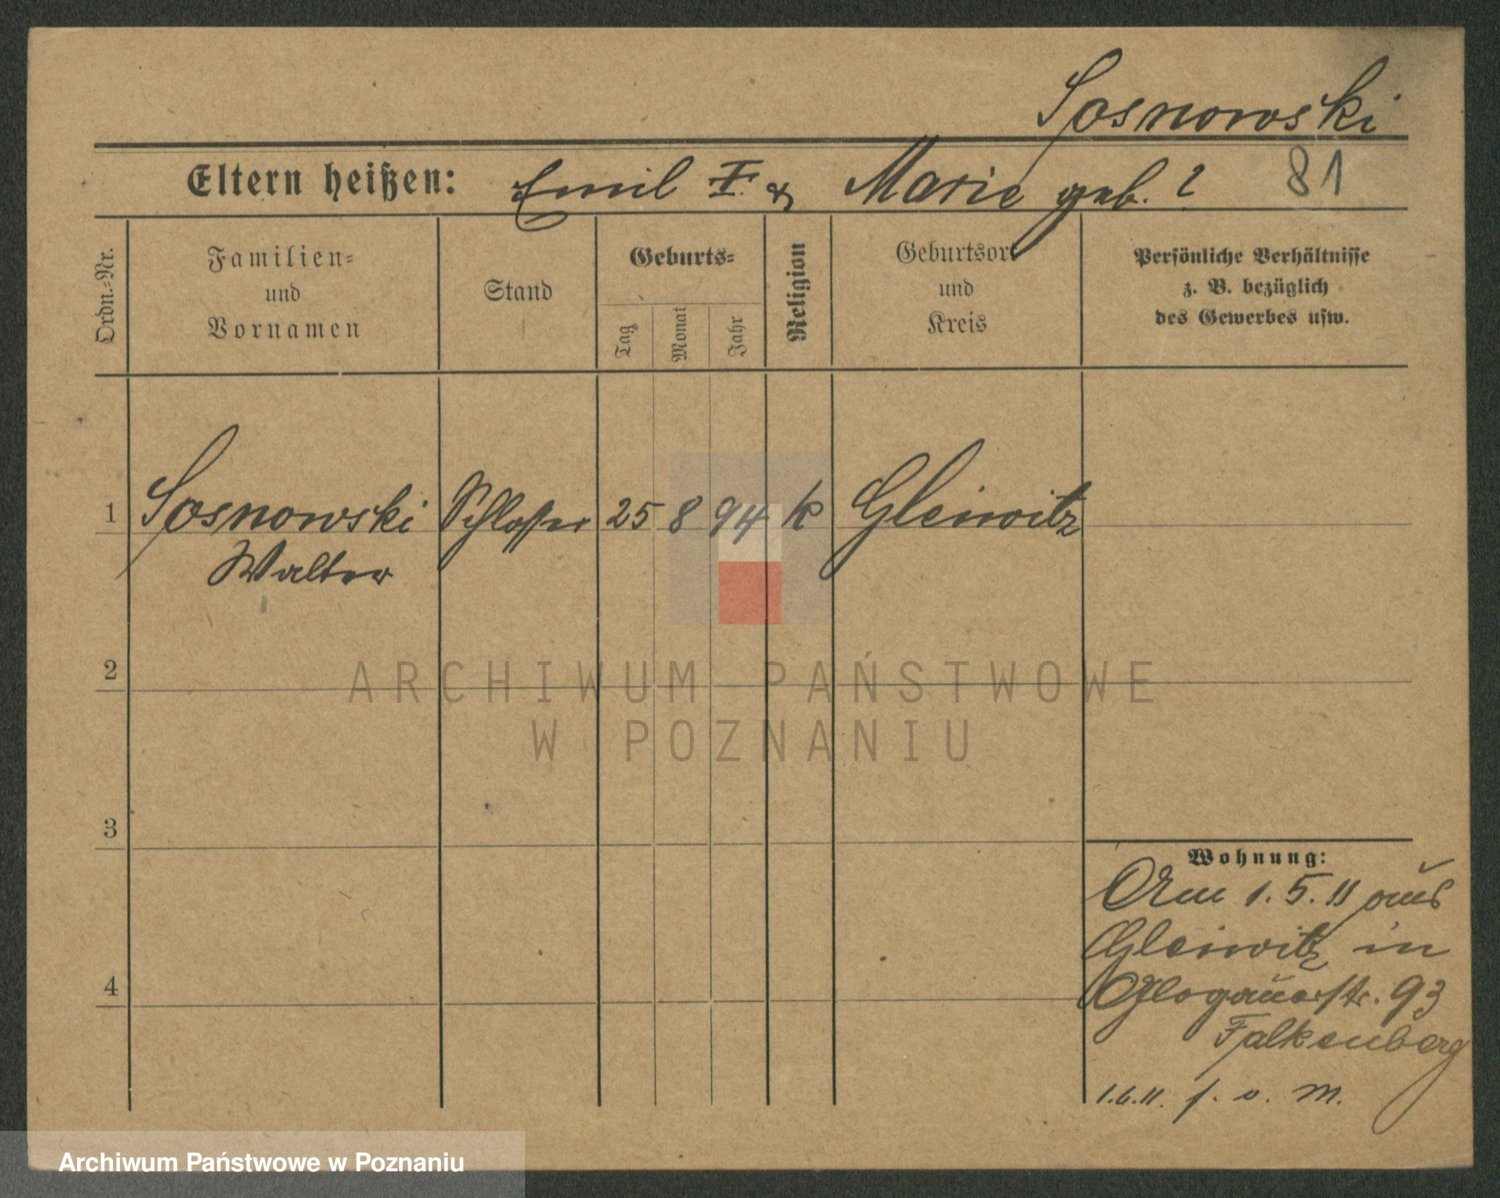 Sosnowski
Eltern heißen: Emil & Marie geb. ? 81
Ordn.=Nr.
Familien=
und
Vornamen
Stand
Geburts=
Tag
Monat
Jahr
Religion
Geburtsort
und
Kreis
Persönliche Verhältnisse
z. B. bezüglich
des Gewerbes usw.
1 Sosnowski Schlosser 25 8 94 k Gleiwitz
Walter
2
ARCHIWUM PAŃSTWOWE
W POZNANIU
3
Wohnung:
Am 1.5.11 aus
Gleiwitz in
Glogauerstr. 93
Falkenberg
4
1.6.11. f. o. M.
Archiwum Państwowe w Poznaniu